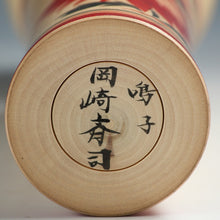 鳴子
岡崎斉司